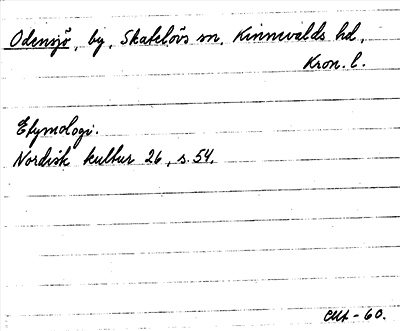 Odensjö, by, Skatelövs sn, Kinnevalds hd,
Kron. l.
Etymologi.
Nordisk kultur 26, s. 54.
-60.